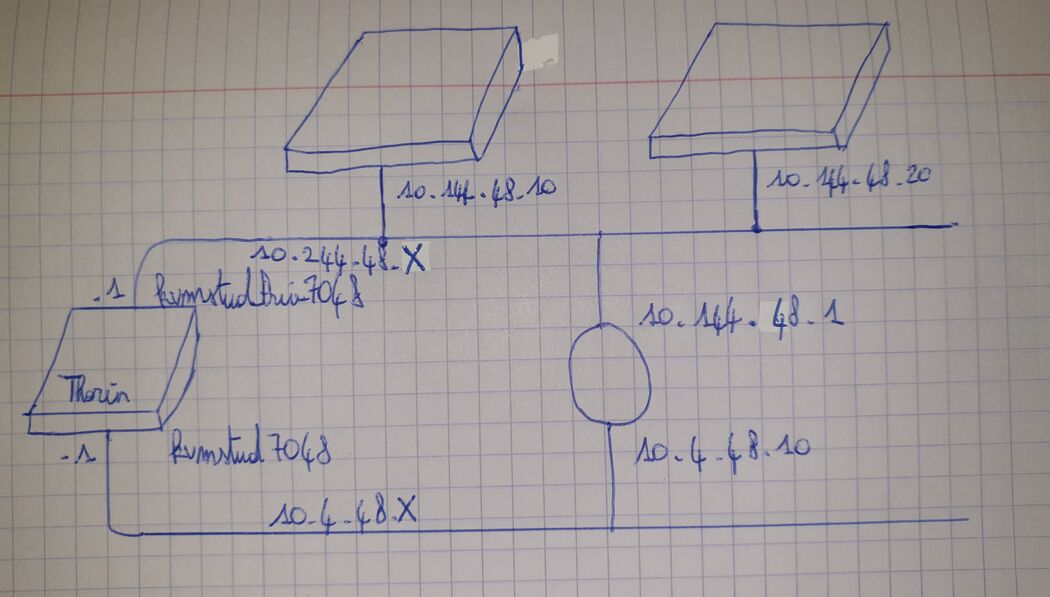 10.144.48.10
10.144.48.20
10.244.48.X
.1
10.144.48.1
Thorin
.1
kvmstud7048
10.4.48.10
10.4.48.X